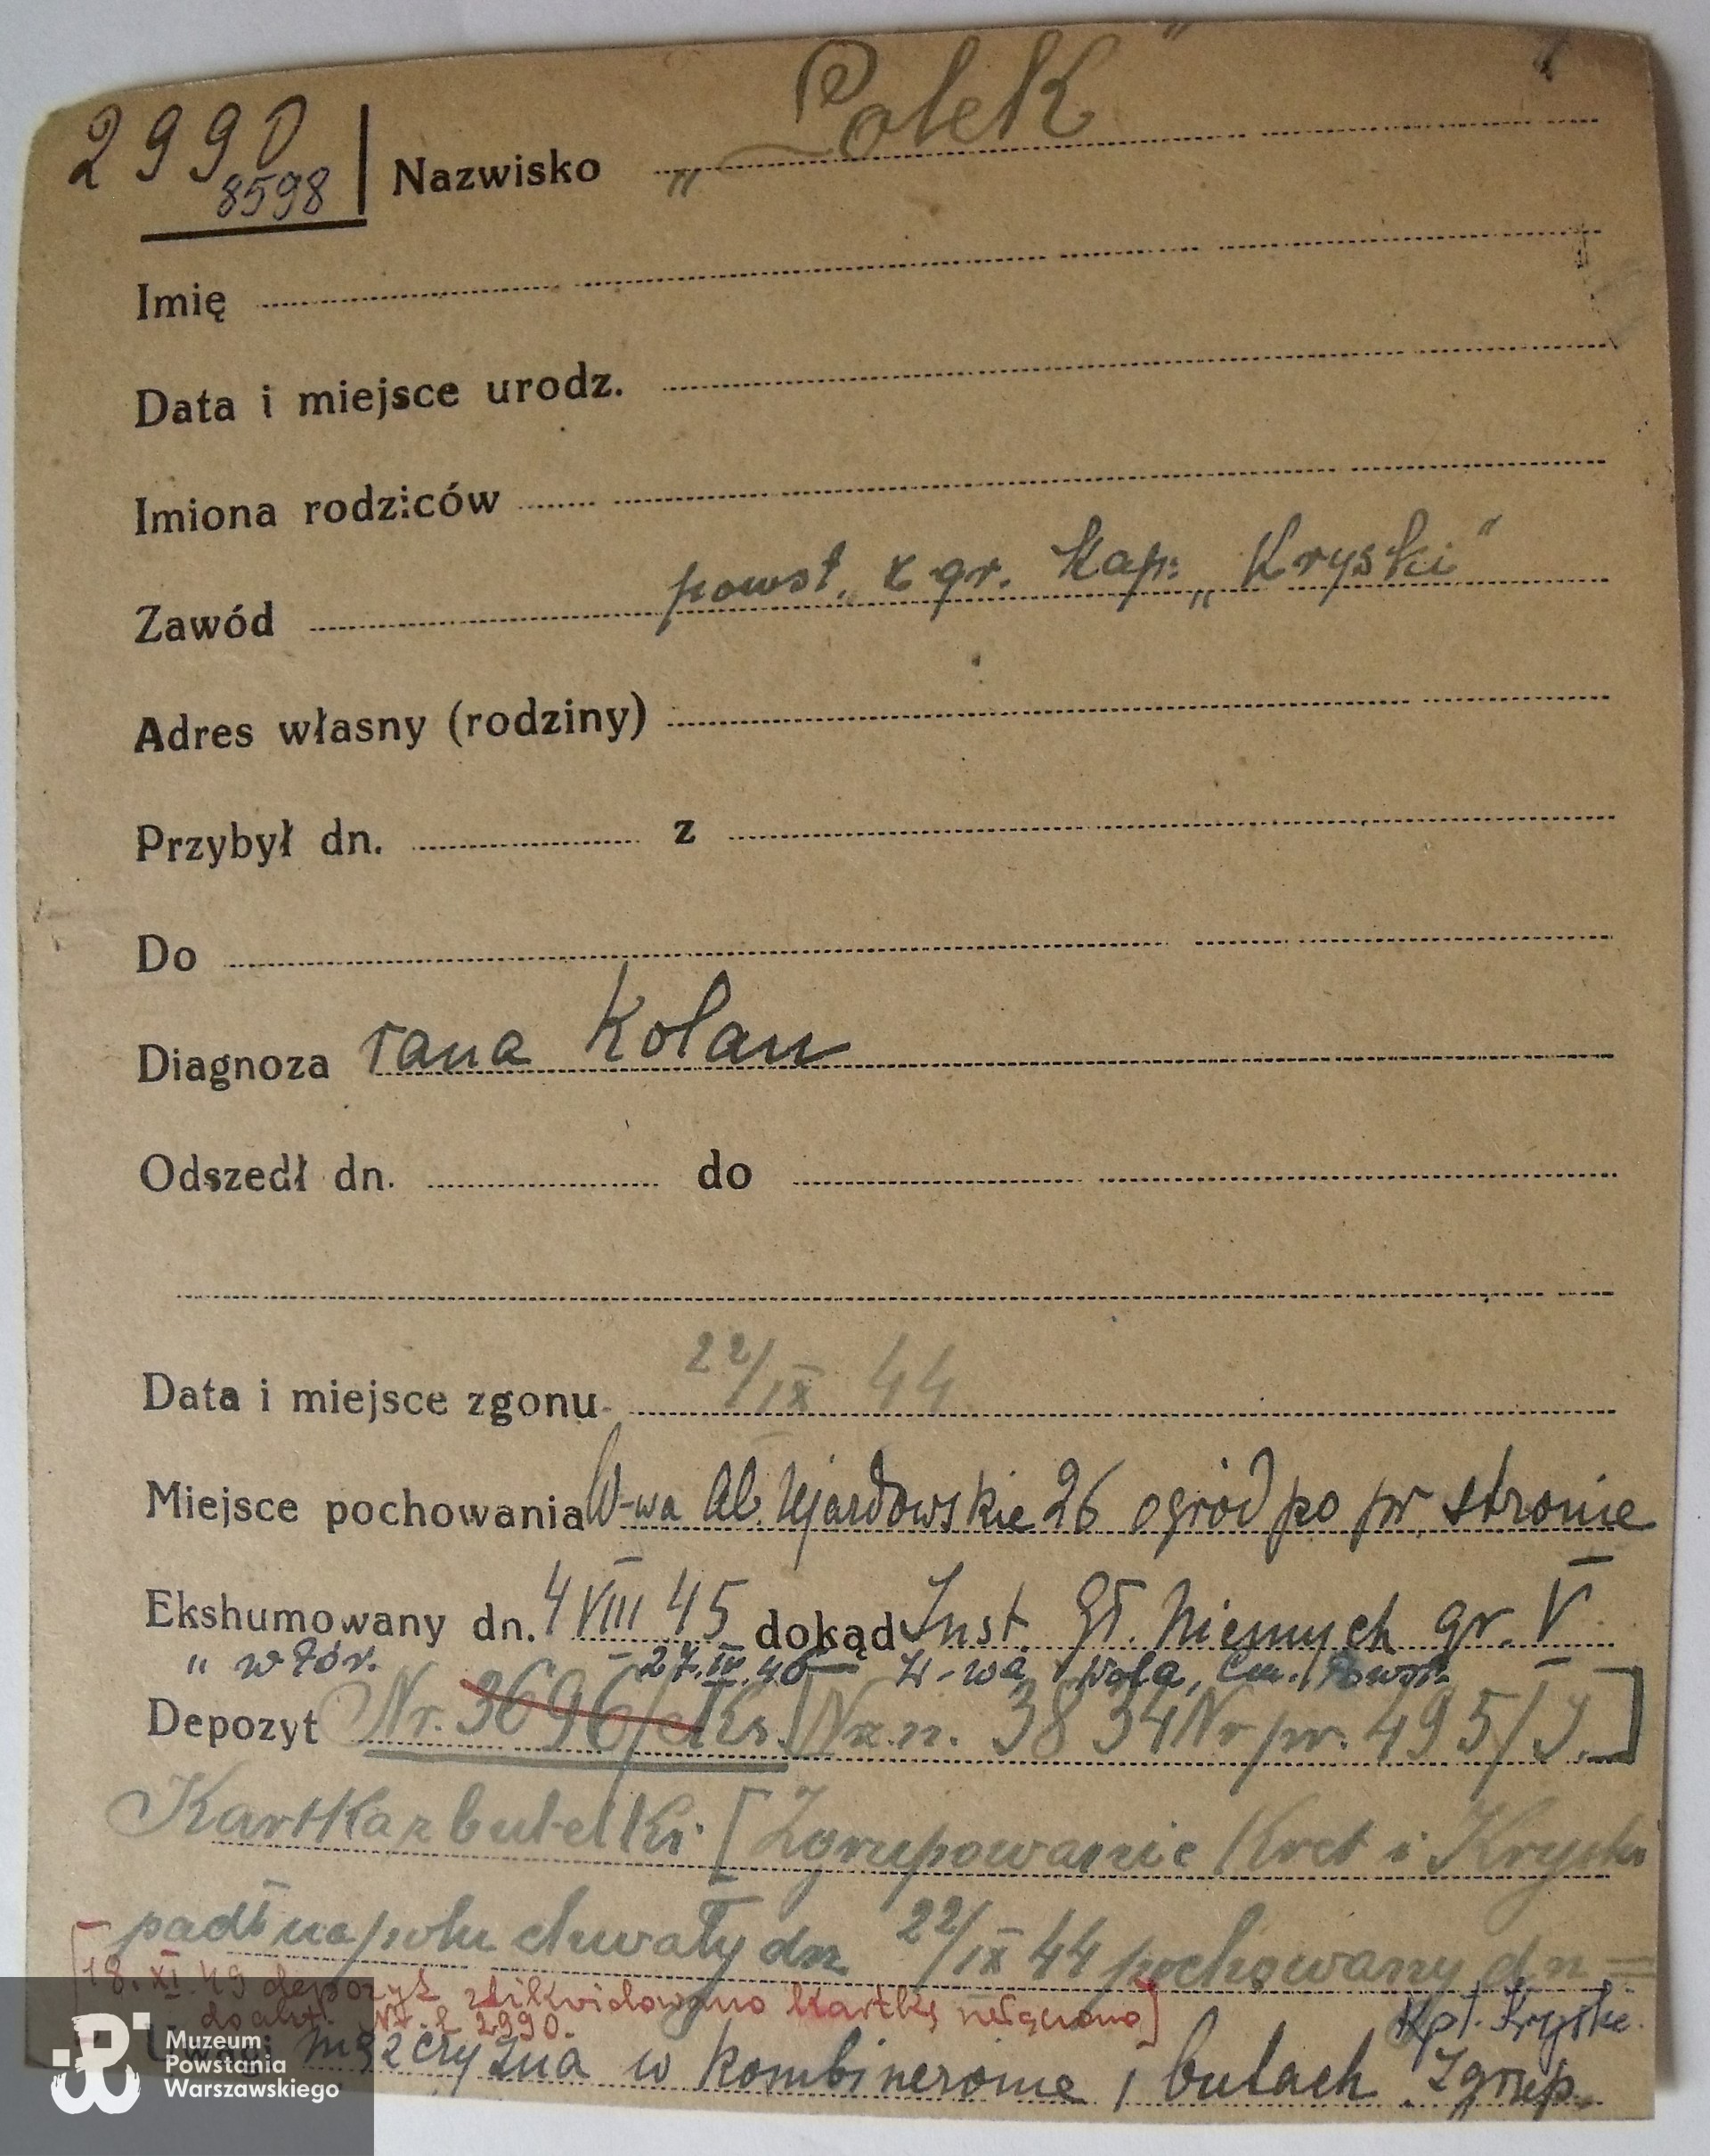 2990
8598
Nazwisko „Polek"
Imię
Data i miejsce urodz.
Imiona rodziców
Zawód powst. z gr. Kap. „Kryski"
Adres własny (rodziny)
Przybył dn. z
Do
Diagnoza rana kolan
Odszedł dn. do
Data i miejsce zgonu 22/IX 44
Miejsce pochowania W-wa Al. Ujazdowskie 26 ogród po pr. stronie
Ekshumowany dn. 4 VIII 45 dokąd Inst. Gł. Niemych gr. V
„ wtór. - 27.IV.46 - W-wa, Wola, Cm. Powst.
Depozyt Nr. 3696/dks. [Nz. n. 3834 Nr pr. 495/J.]
Kartka z butelki [Zgrupowanie Kret i Kryski
padł na polu chwały dn. 22/IX 44 pochowany dn =
[18.XI.49 depozyt zlikwidowano kartkę włączono]
do akt. Nr. L 2990.
Kpt. Kryski.
Uwagi mężczyzna w kombinezonie i butach Zgrup.
Muzeum
Powstania
Warszawskiego